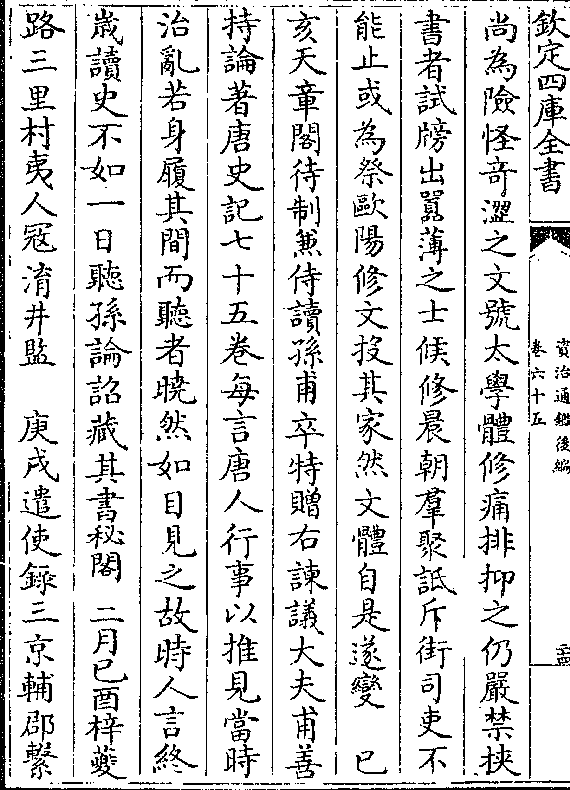 欽定四庫全書
資治通鑑後編
卷六十五
尚為險怪竒澀之文號太學體修痛排抑之仍嚴禁挾
書者試牓出囂薄之士候修晨朝羣聚詆斥街司吏不
能止或為祭歐陽修文投其家然文體自是遂變　已
亥天章閣待制兼侍讀孫甫卒特贈右諫議大夫甫善
持論著唐史記七十五卷每言唐人行事以推見當時
治亂若身履其間而聽者曉然如目見之故時人言終
歲讀史不如一日聽孫論詔藏其書秘閣　二月己酉梓夔
路三里村夷人冦淯井監　庚戌遣使錄三京輔郡繫